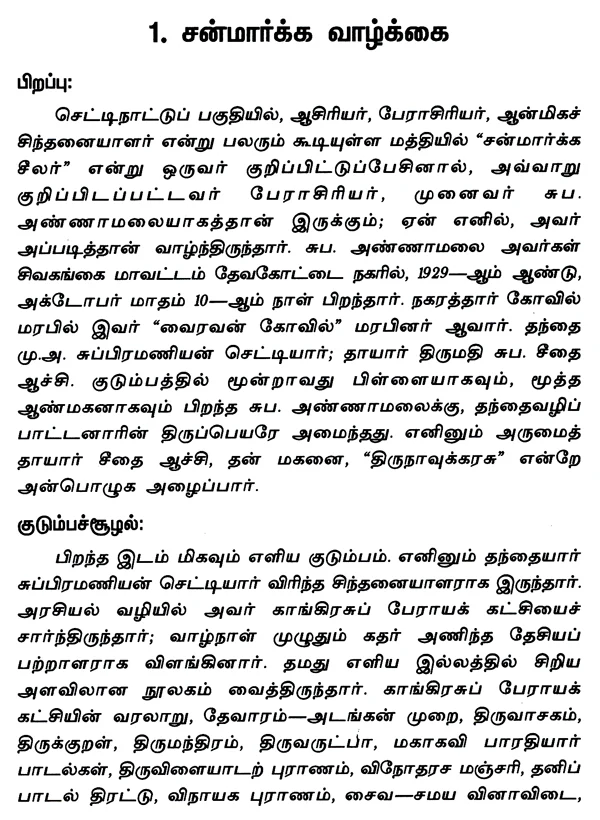 1. சன்மார்க்க வாழ்க்கை
பிறப்பு:
செட்டிநாட்டுப் பகுதியில், ஆசிரியர், பேராசிரியர், ஆன்மிகச்
சிந்தனையாளர் என்று பலரும் கூடியுள்ள மத்தியில் “சன்மார்க்க
சீலர்” என்று ஒருவர் குறிப்பிட்டுப்பேசினால், அவ்வாறு
குறிப்பிடப்பட்டவர் பேராசிரியர், முனைவர் சுப.
அண்ணாமலையாகத்தான் இருக்கும்; ஏன் எனில், அவர்
அப்படித்தான் வாழ்ந்திருந்தார். சுப. அண்ணாமலை அவர்கள்
சிவகங்கை மாவட்டம் தேவகோட்டை நகரில், 1929—ஆம் ஆண்டு,
அக்டோபர் மாதம் 10—ஆம் நாள் பிறந்தார். நகரத்தார் கோவில்
மரபில் இவர் “வைரவன் கோவில்” மரபினர் ஆவார். தந்தை
மு.அ. சுப்பிரமணியன் செட்டியார்; தாயார் திருமதி சுப. சீதை
ஆச்சி. குடும்பத்தில் மூன்றாவது பிள்ளையாகவும், மூத்த
ஆண்மகனாகவும் பிறந்த சுப. அண்ணாமலைக்கு, தந்தைவழிப்
பாட்டனாரின் திருப்பெயரே அமைந்தது. எனினும் அருமைத்
தாயார் சீதை ஆச்சி, தன் மகனை, “திருநாவுக்கரசு” என்றே
அன்பொழுக அழைப்பார்.
குடும்பச்சூழல்:
பிறந்த இடம் மிகவும் எளிய குடும்பம். எனினும் தந்தையார்
சுப்பிரமணியன் செட்டியார் விரிந்த சிந்தனையாளராக இருந்தார்.
அரசியல் வழியில் அவர் காங்கிரசுப் பேராயக் கட்சியைச்
சார்ந்திருந்தார்; வாழ்நாள் முழுதும் கதர் அணிந்த தேசியப்
பற்றாளராக விளங்கினார். தமது எளிய இல்லத்தில் சிறிய
அளவிலான நூலகம் வைத்திருந்தார். காங்கிரசுப் பேராயக்
கட்சியின் வரலாறு, தேவாரம்—அடங்கன் முறை, திருவாசகம்,
திருக்குறள், திருமந்திரம், திருவருட்பா, மகாகவி பாரதியார்
பாடல்கள், திருவிளையாடற் புராணம், விநோதரச மஞ்சரி, தனிப்
பாடல் திரட்டு, விநாயக புராணம், சைவ—சமய வினாவிடை,